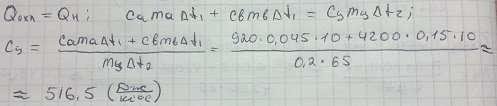 Qохл = Qн; cаmаΔt₁ + cвmвΔt₁ = cуmуΔt₂;
cу = (cаmаΔt₁ + cвmвΔt₁) / (mуΔt₂) = (920·0,045·10 + 4200·0,15·10) / (0,2·65) ≈
≈ 516,5 (Дж/кг·°C)